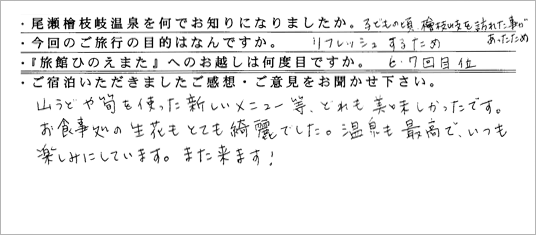 ・尾瀬檜枝岐温泉を何でお知りになりましたか。子どもの頃 檜枝岐を訪れた事が
あったため
・今回のご旅行の目的はなんですか。 リフレッシュするため
・『旅館ひのえまた』へのお越しは何度目ですか。 6.7回目位
・ご宿泊いただきましたご感想・ご意見をお聞かせ下さい。
山うどや筍を使った新しいメニュー等、どれも美味しかったです。
お食事処の生花もとても綺麗でした。温泉も最高で、いつも
楽しみにしています。また来ます!